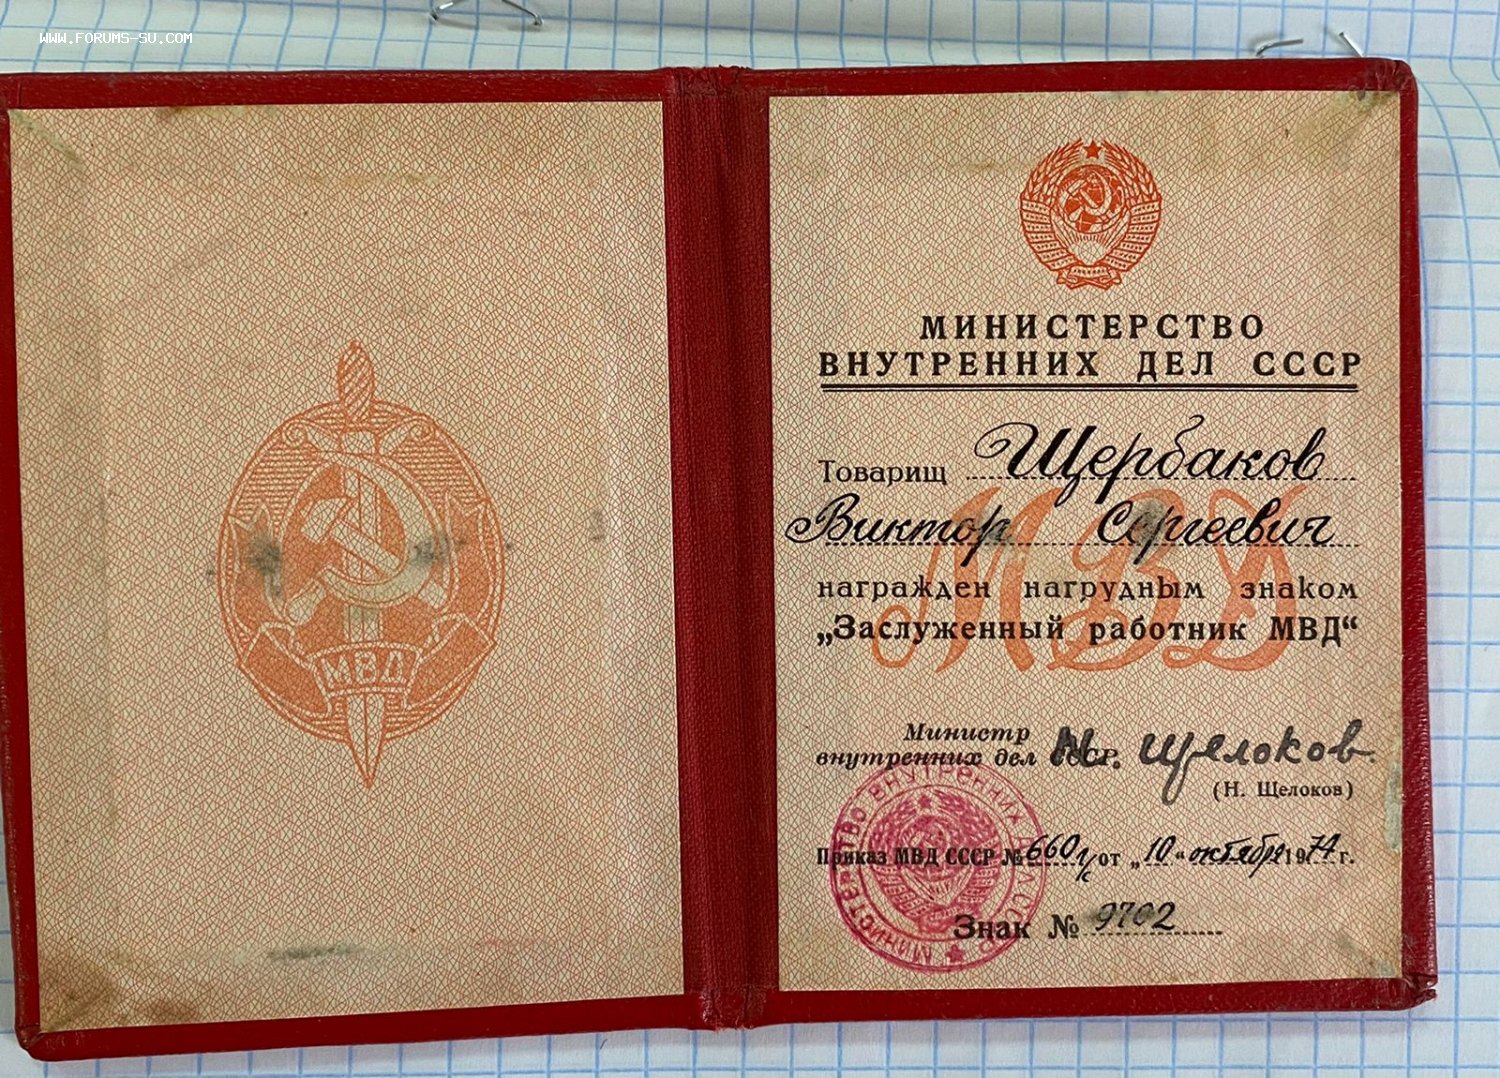 WWW.FORUMS-SU.COM
МВД
МИНИСТЕРСТВО
ВНУТРЕННИХ ДЕЛ СССР
Товарищ Щербаков
Виктор Сергеевич
МВД
награжден нагрудным знаком
„Заслуженный работник МВД“
Министр
внутренних дел СССР. Н. Щелоков
(Н. Щелоков)
МИНИСТЕРСТВО ВНУТРЕННИХ ДЕЛ СССР
Приказ МВД СССР № 660 л/с от „10“ октября 1974 г.
Знак № 9702